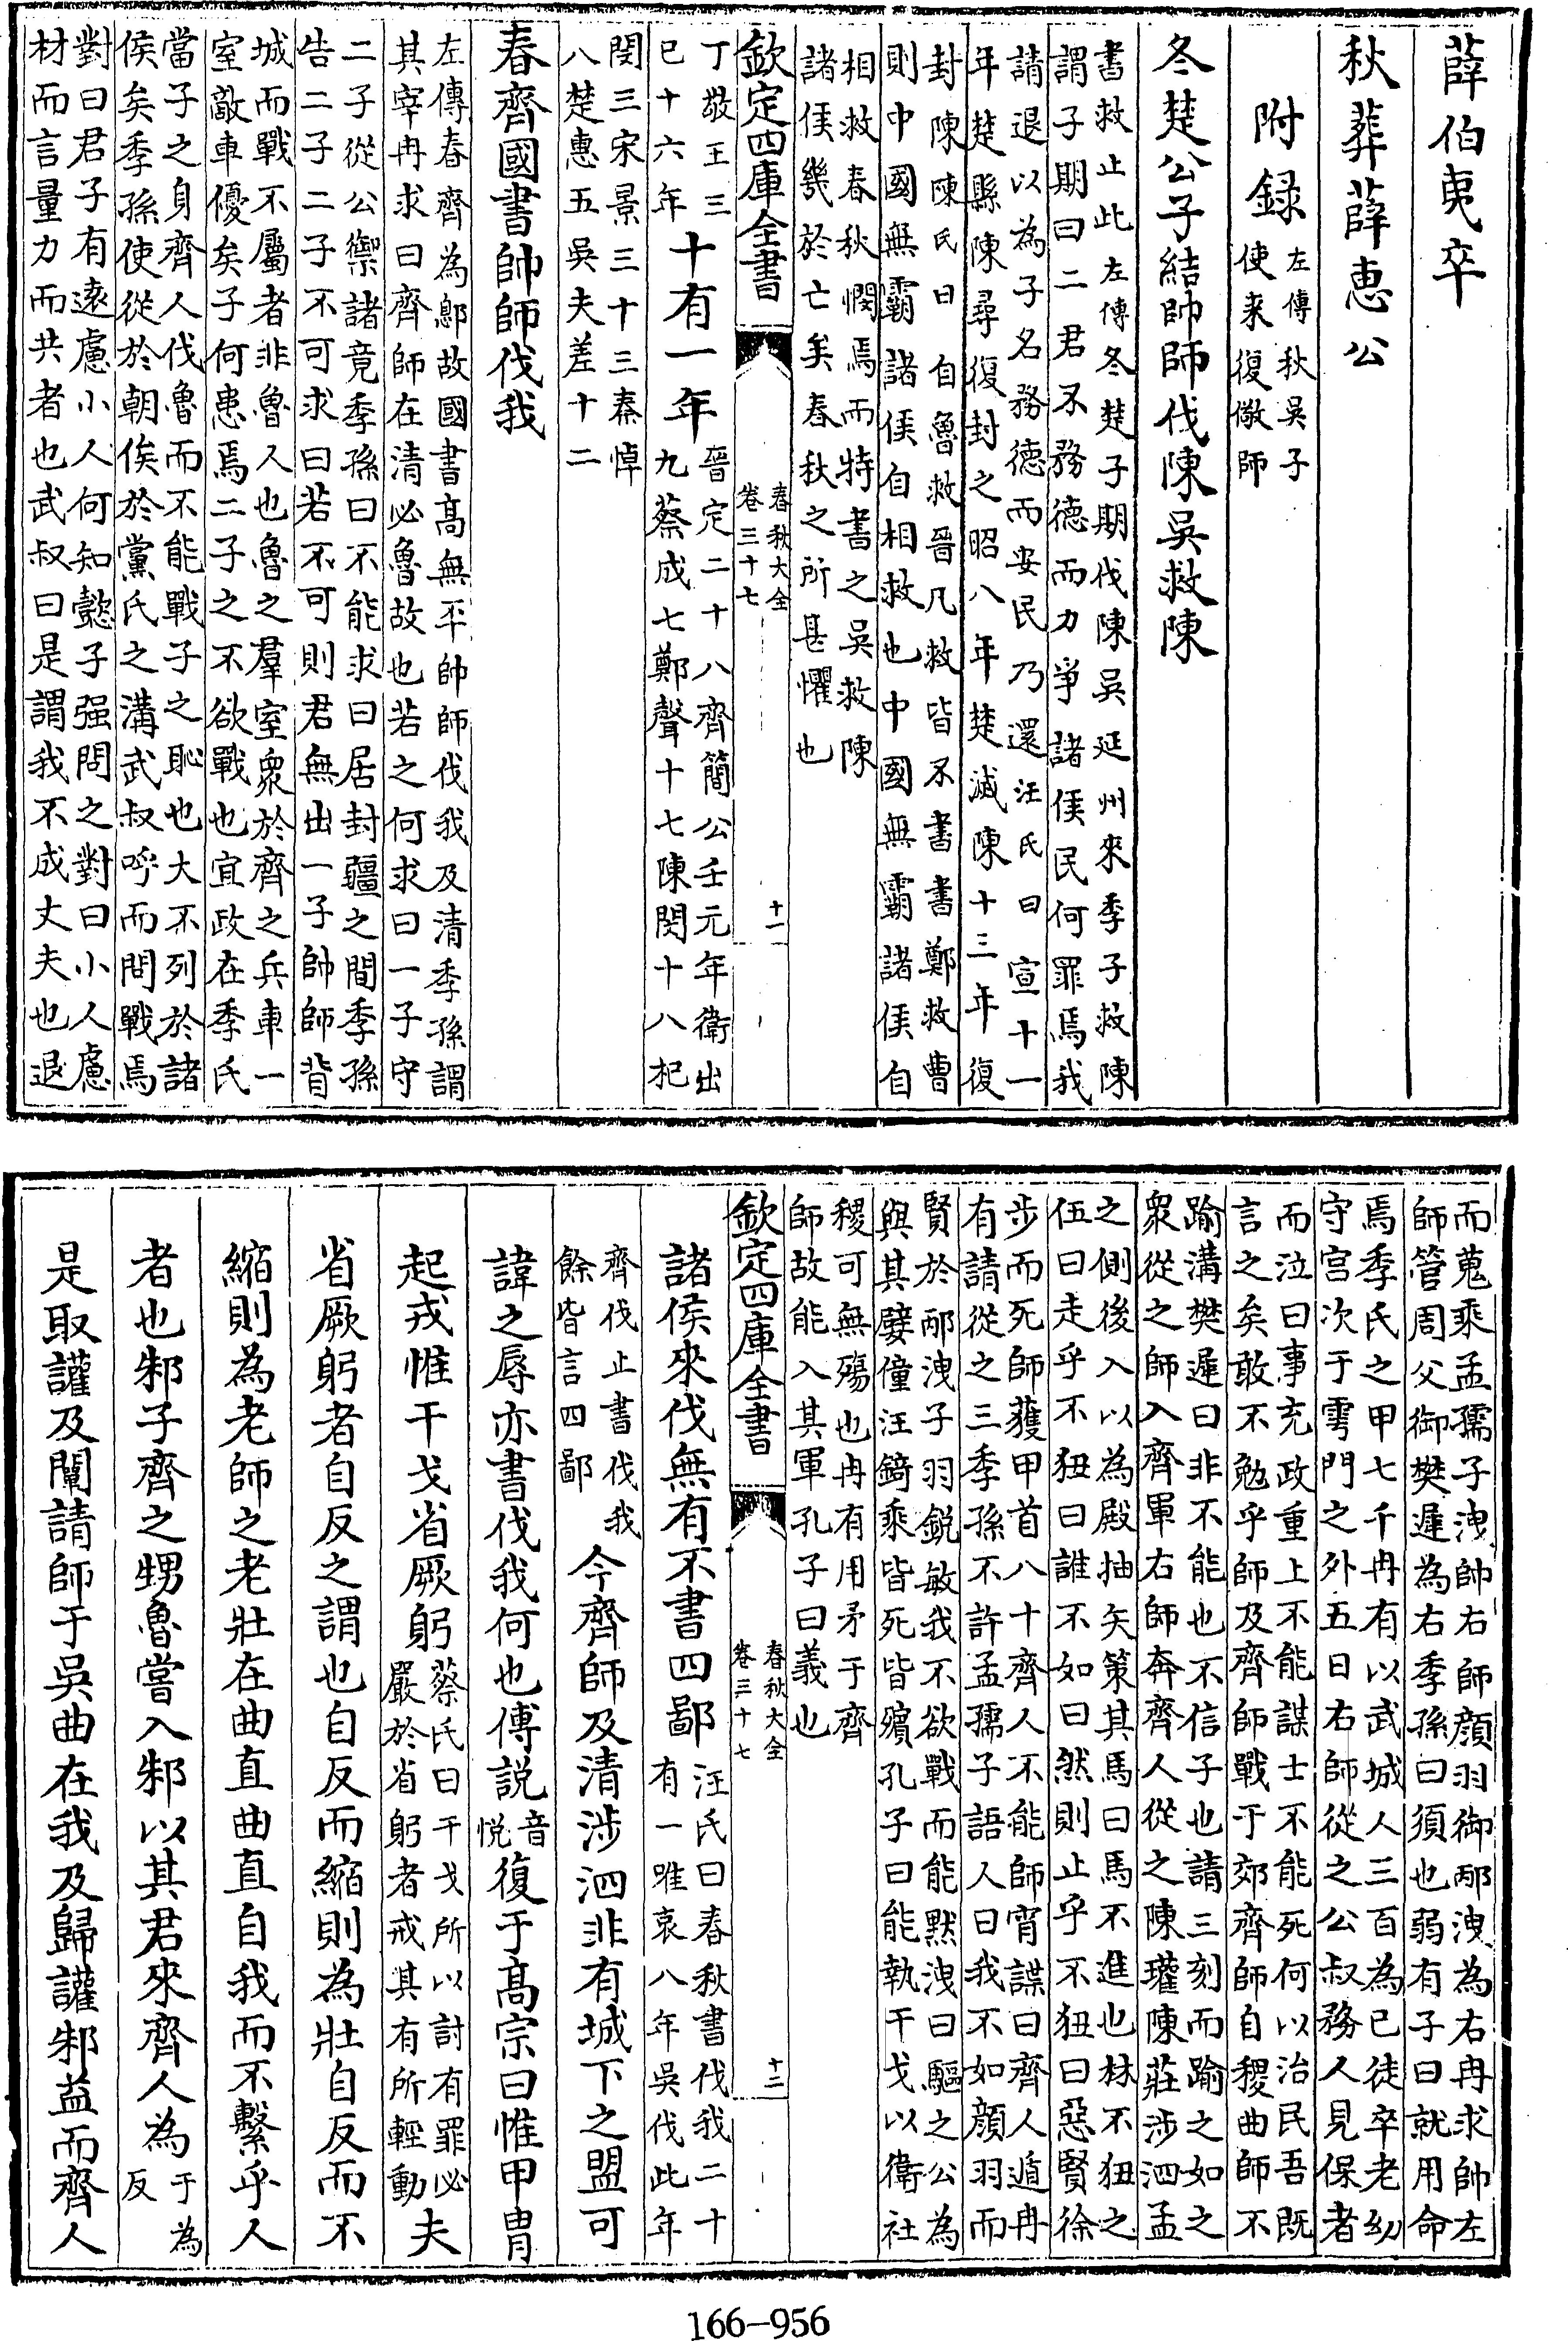 薛伯夷卒
秋葬薛惠公
附録左傳秋吳子
使來復儆師
冬楚公子結帥師伐陳吳救陳
書救止此左傳冬楚子期伐陳吳延州來季子救陳
謂子期曰二君不務德而力爭諸侯民何罪焉我
請退以為子名務德而安民乃還汪氏曰宣十一
年楚縣陳尋復封之昭八年楚滅陳十三年復
封陳陳氏曰自魯救晉凡救皆不書書鄭救曹
則中國無霸諸侯自相救也中國無霸諸侯自
相救春秋憫焉而特書之吳救陳
諸侯幾於亡矣春秋之所甚懼也
欽定四庫全書
春秋大全
卷三十七
十一
丁敬王三
巳十六年
十有一年
晉定二十八齊簡公壬元年衛出
九蔡成七鄭聲十七陳閔十八杞
閔三宋景三十三秦悼
八楚惠五吳夫差十二
春齊國書帥師伐我
左傳春齊為鄎故國書高無㔻帥師伐我及清季孫謂
其宰冉求曰齊師在清必魯故也若之何求曰一子守
二子從公禦諸竟季孫曰不能求曰居封疆之間季孫
告二子二子不可求曰若不可則君無出一子帥師背
城而戰不屬者非魯人也魯之羣室衆於齊之兵車一
室敵車優矣子何患焉二子之不欲戰也宜政在季氏
當子之身齊人伐魯而不能戰子之恥也大不列於諸
侯矣季孫使從於朝俟於黨氏之溝武叔呼而問戰焉
對曰君子有遠慮小人何知懿子强問之對曰小人慮
材而言量力而共者也武叔曰是謂我不成丈夫也退
而蒐乘孟孺子洩帥右師顔羽御邴洩為右冉求帥左
師管周父御樊遲為右季孫曰須也弱有子曰就用命
焉季氏之甲七千冉有以武城人三百為已徒卒老幼
守宮次于雩門之外五日右師從之公叔務人見保者
而泣曰事充政重上不能謀士不能死何以治民吾既
言之矣敢不勉乎師及齊師戰于郊齊師自稷曲師不
踰溝樊遲曰非不能也不信子也請三刻而踰之如之
衆從之師入齊軍右師奔齊人從之陳瓘陳莊涉泗孟
之側後入以為殿抽矢策其馬曰馬不進也林不狃之
伍曰走乎不狃曰誰不如曰然則止乎不狃曰惡賢徐
步而死師獲甲首八十齊人不能師宵諜曰齊人遁冉
有請從之三季孫不許孟孺子語人曰我不如顔羽而
賢於邴洩子羽銳敏我不欲戰而能默洩曰驅之公為
與其嬖僮汪錡乘皆死皆殯孔子曰能執干戈以衛社
稷可無殤也冉有用矛于齊
師故能入其軍孔子曰義也
欽定四庫全書
春秋大全
卷三十七
十二
諸侯來伐無有不書四鄙
汪氏曰春秋書伐我二十
有一唯哀八年吳伐此年
齊伐止書伐我
餘皆言四鄙
今齊師及清涉泗非有城下之盟可
諱之辱亦書伐我何也傅説
音
悅
復于髙宗曰惟甲冑
起戎惟干戈省厥躬
蔡氏曰干戈所以討有罪必
嚴於省躬者戒其有所輕動
夫
省厥躬者自反之謂也自反而縮則為壯自反而不
縮則為老師之老壯在曲直曲直自我而不繫乎人
者也邾子齊之甥魯嘗入邾以其君來齊人為
于為
反
是取讙及闡請師于吳曲在我及歸讙邾益而齊人
166-956